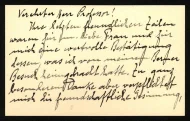 Verehrter Herr Professor!
Ihre letzten freundlichen Zeilen
waren für meine liebe Frau und für
mich eine wertvolle Bestätigung
dessen, was ich von meinem Berner
Besuch heimgebracht hatte. Zu ganz
besonderem Danke aber verpflichtet
mich die freundschaftliche Gesinnung,